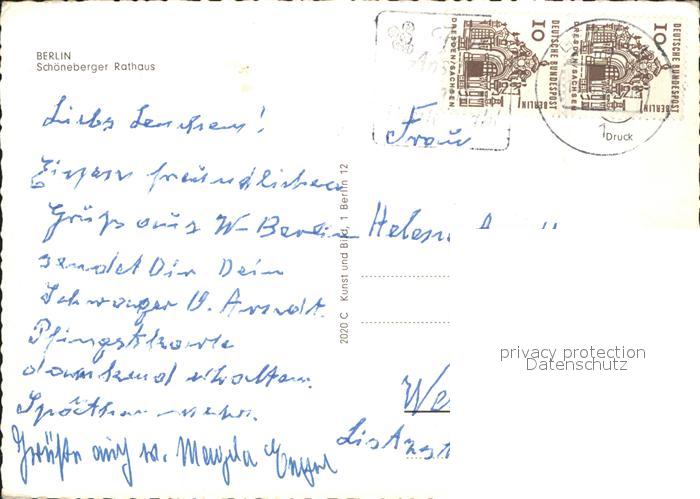 BERLIN
Schöneberger Rathaus
DEUTSCHE BUNDESPOST BERLIN
10
DRESDEN/SACHSEN
DEUTSCHE BUNDESPOST BERLIN
10
DRESDEN/SACHSEN
Druck
Liebes Lenchen!
Frau
freundlichen
Grüße aus W-Berlin
Helene
sendet Dir Dein
Schwager O. Arndt.
Pfingstkarte
dankend erhalten.
Später mehr.
Grüße auch
We
2020 C Kunst und Bild, 1 Berlin 12
privacy protection
Datenschutz